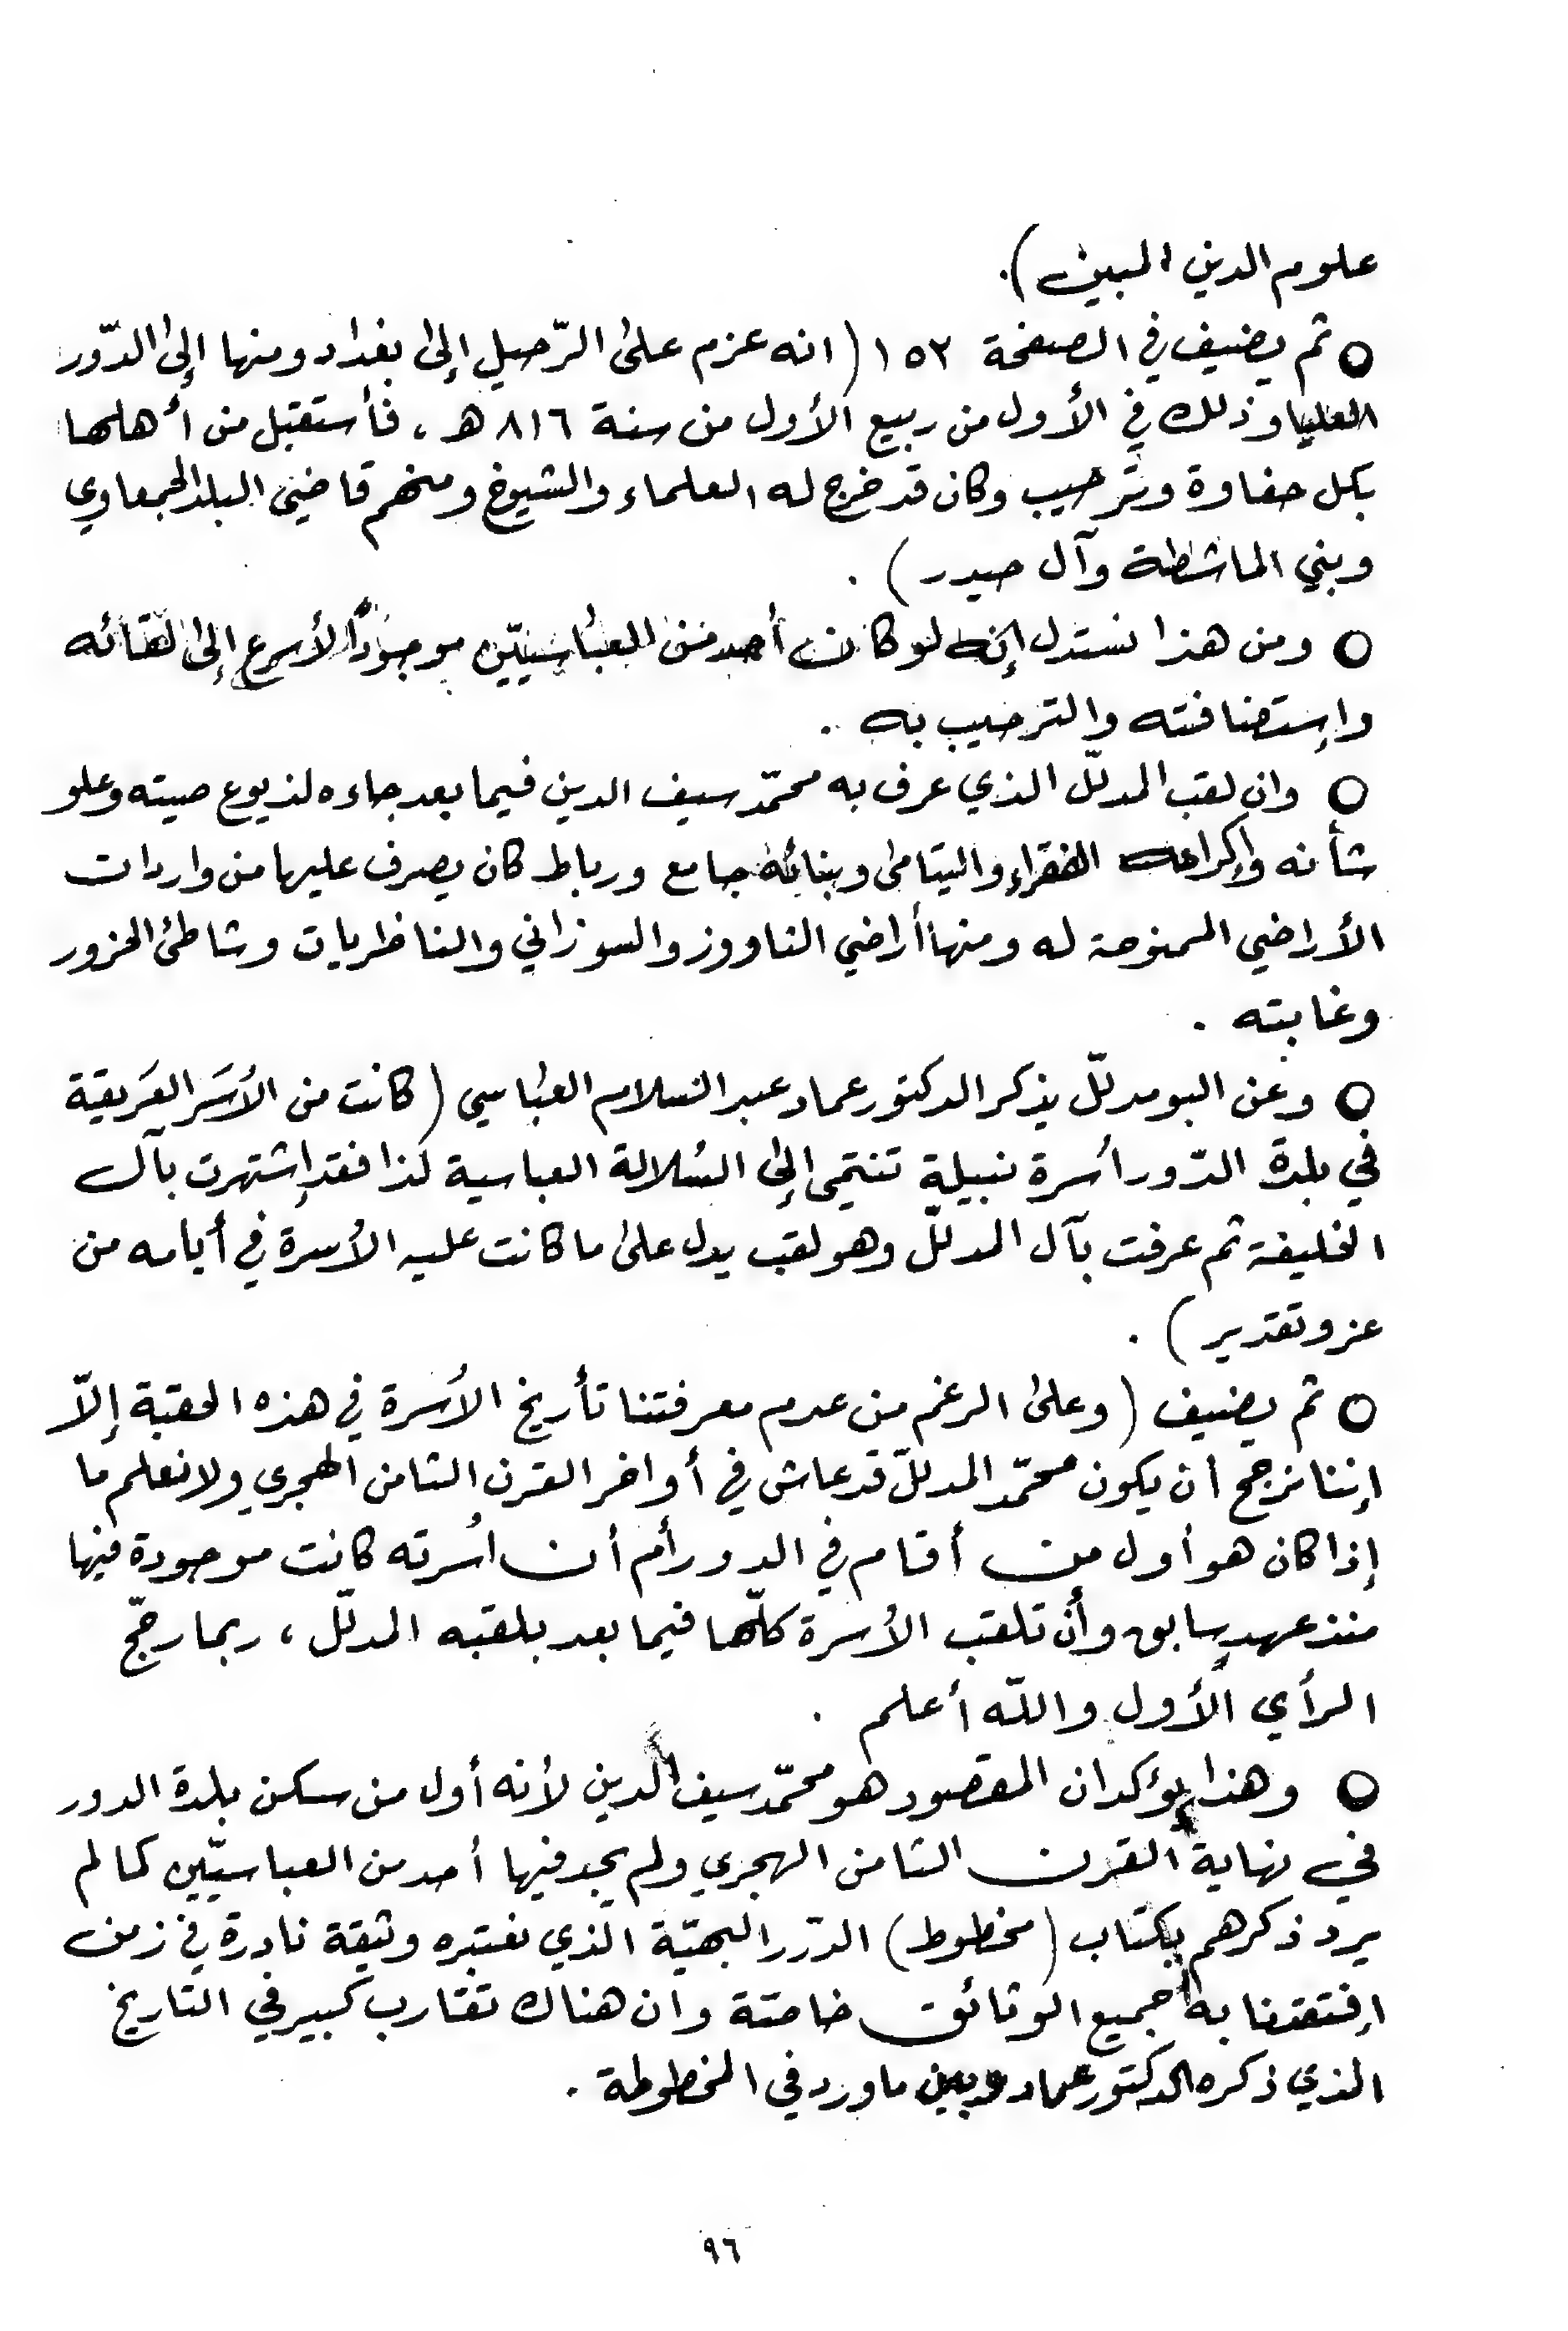 علوم الدين المبين).
○ ثم يضيف في الصفحة ١٥٢ (انه عزم على الرّحيل إلى بغداد ومنها إلى الدّور
العليا وذلك في الأول من ربيع الأول من سنة ٨١٦ هـ، فأستقبل من أهلها
بكل حفاوة وترحيب وكان قد خرج له العلماء والشيوخ ومنهم قاضي البلد الجمعاوي
وبني الماشطة وآل حيدر) .
○ ومن هذا نستدل إنه لو كان أحد من العباسيّين موجوداً لأسرع إلى لقائه
وإستضافته والترحيب به .
○ وان لقب المدلّل الذي عرف به محمّد سيف الدين فيما بعد جاءه لذيوع صيته وعلو
شأنه وإكرامه الفقراء واليتامى وبنائه جامع ورباط كان يصرف عليها من واردات
الأراضي الممنوحة له ومنها أراضي الناووز والسوزاني والناظريات وشاطئ الحزور
وغابته .
○ وعن البومدلّل يذكر الدكتور عماد عبد السلام العباسي (كانت من الأسَر العَريقة
في بلدة الدّور أسرة نبيلة تنتمي إلى السُلالة العباسية لذا فقد إشتهرت بآل
الخليفة ثم عرفت بآل المدلّل وهو لقب يدل على ما كانت عليه الأسرة في أيامه من
عز وتقدير) .
○ ثم يضيف (وعلى الرغم من عدم معرفتنا تأريخ الأسرة في هذه الحقبة إلاّ
إننا نرجح أن يكون محمّد المدلّل قد عاش في أواخر القرن الثامن الهجري ولا نعلم ما
إذا كان هو أول من أقام في الدور أم أن اُسرته كانت موجودة فيها
منذ عهدٍ سابق وأن تلقب الأسرة كلّها فيما بعد بلقبه المدلّل ، ربما رجّح
الرأي الأول والله أعلم .
○ وهذا يؤكد ان المقصود هو محمّد سيف الدين لأنه أول من سكن بلدة الدور
في نهاية القرن الثامن الهجري ولم يجد فيها أحد من العباسيّين كما لم
يرد ذكرهم بكتاب (مخطوط) الدّرر البهيّة الذي نعتبره وثيقة نادرة في زمن
إفتقدنا به جميع الوثائق خاصّة وان هناك تقارب كبير في التاريخ
الذي ذكره الدكتور عماد وبين ما ورد في المخطوطة .
٩٦